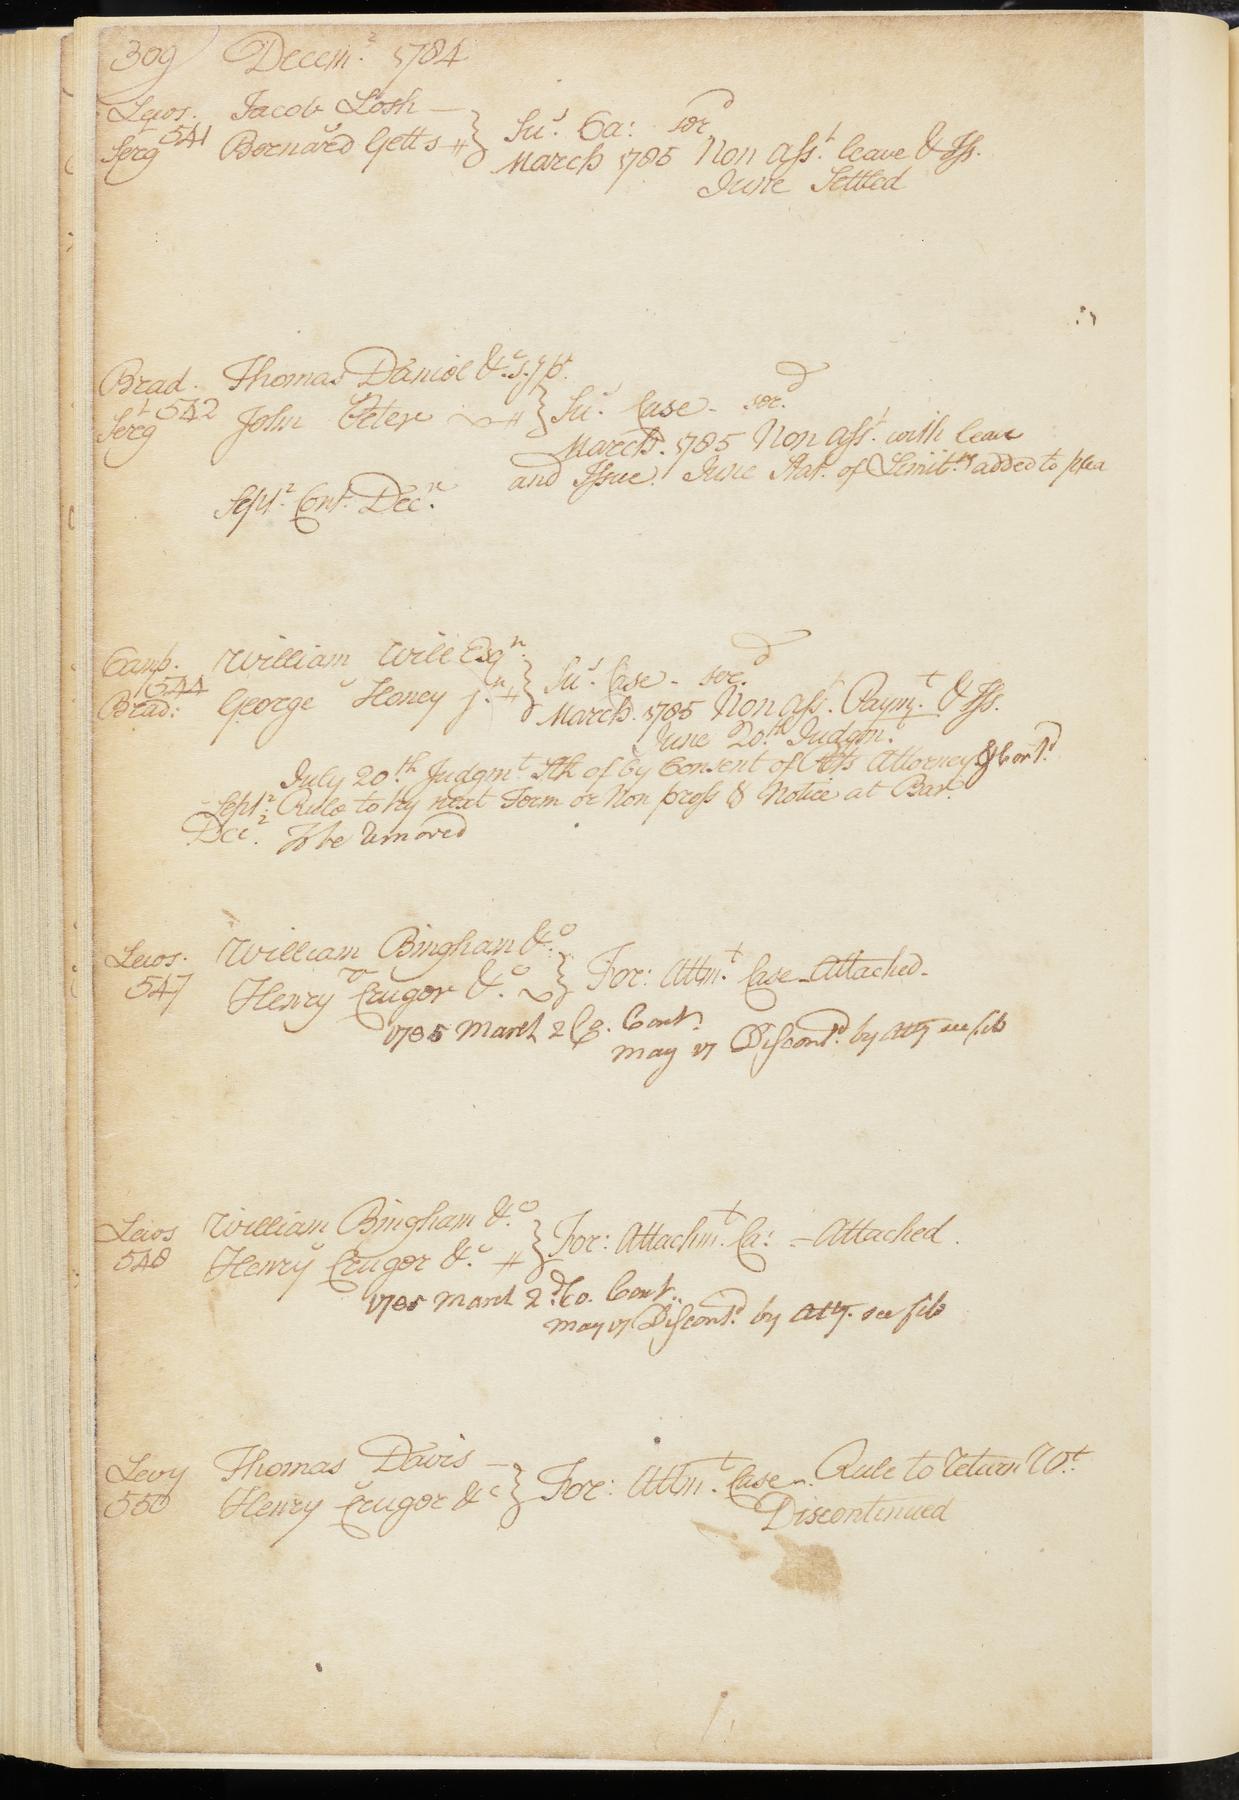 309 Decem.r 1784
Lewis. Jacob Losh —
541 v
Serg.t Bernard Getts } Su.s Ca: ser.d
March 1785 Non Ass.t leave & Iss.
June Settled
Brad. Thomas Daniel &c.
542 v
Serg.t John Peter } Su.s Case - ser.d
March. 1785 Non Ass.t with leave
and Issue. June Stat. of Limit.ns added to plea
Sept.r Con.t Dec.r
Camp. William Will Esq.r
544 v
Brad: George Honey j.r } Su.s Case - ser.d
March. 1785 Non Ass.t Paym.t & Iss.
June 20.th Judgm.t
July 20.th Judgm.t Stk of by Consent of Attorney
Sept.r Rule to try next Term or Non pross & Notice at Bar.
Dec.r To be removed
Lewis. William Bingham &c.o
547 v
Henry Cruger &c.o } For: Attm.t Case - Attached -
1785 March 2 Co. Cont.
May 17 Discont.d by Atty see file
Lewis William Bingham &c.o
548 v
Henry Cruger &c. } For: Attachm.t Ca: - Attached.
1785 March 2.d Co. Cont.
May 17 Discont.d by Atty. see file
Levy Thomas Davis —
550 v
Henry Cruger &c } For: Attm.t Case - Rule to return W.t
Discontinued